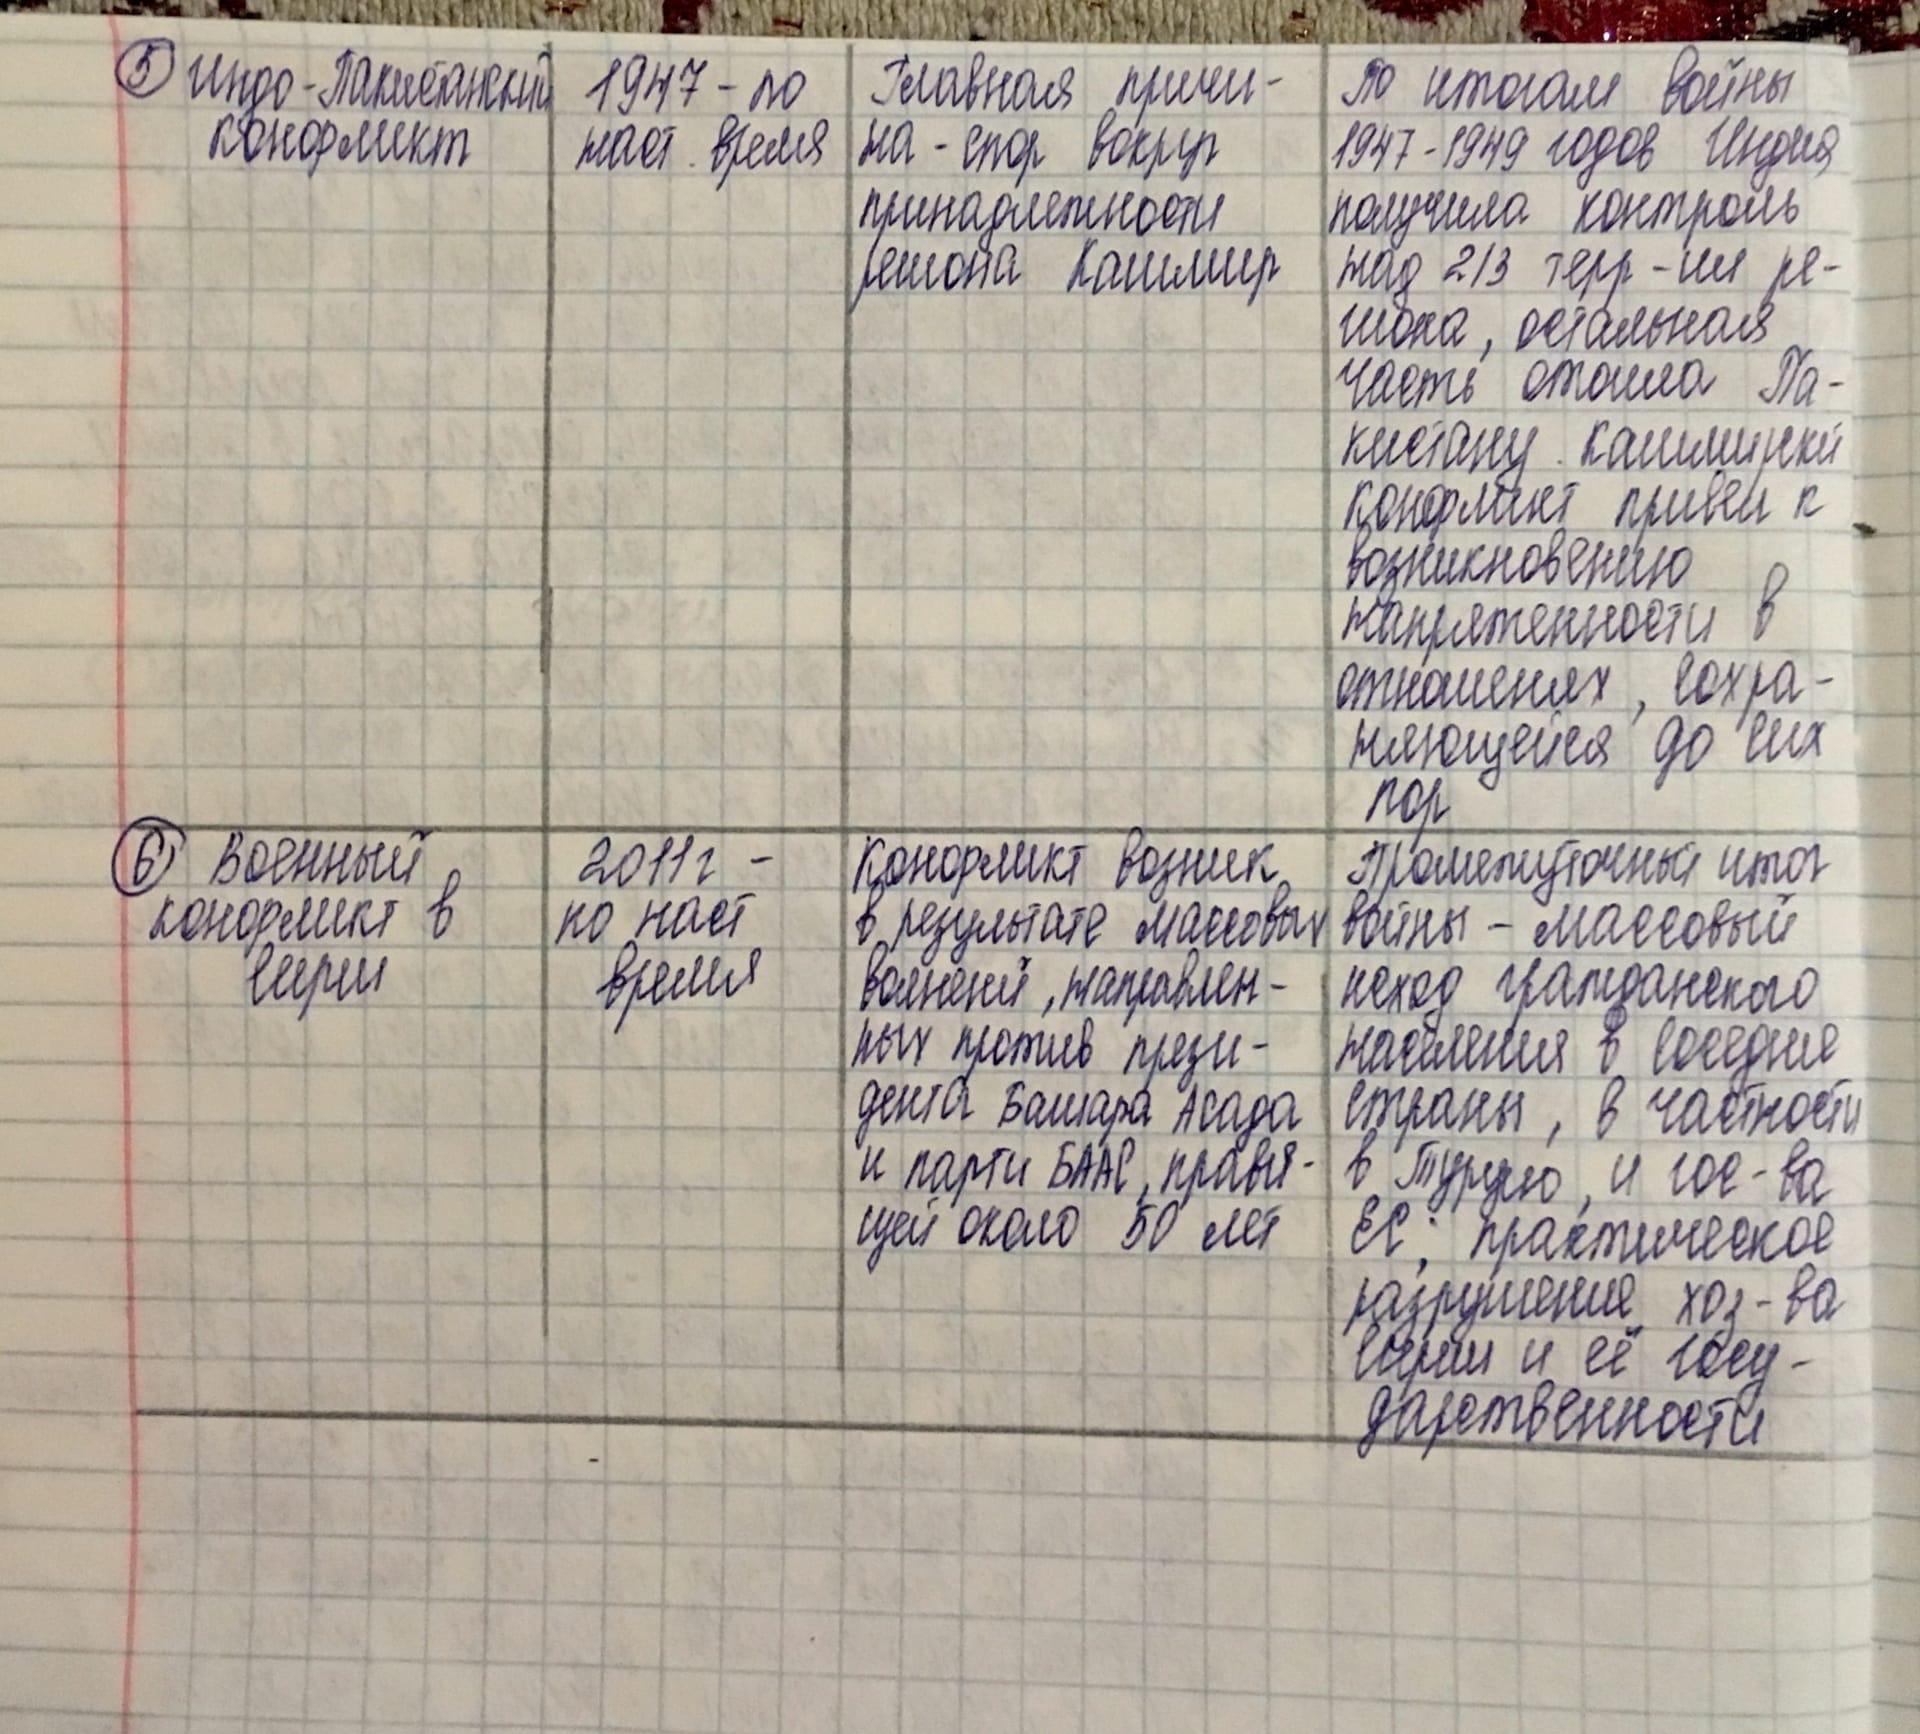 5 Индо-Пакистанский
конфликт
1947 - по
наст. время
Главная причи-
на - спор вокруг
принадлежности
региона Кашмир
По итогам войны
1947-1949 годов Индия
получила контроль
над 2/3 терр-ии ре-
гиона, остальная
часть отошла Па-
кистану. Кашмирский
конфликт привел к
возникновению
напряженности в
отношениях, сохра-
няющейся до сих
пор
6 Военный
конфликт в
Сирии
2011г -
по наст
время
Конфликт возник
в результате массовых
волнений, направлен-
ных против прези-
дента Башара Асада
и парти БААС, правя-
щей около 50 лет
Промежуточный итог
войны - массовый
исход гражданского
населения в соседние
страны, в частности
в Турцию, и гос-ва
ЕС; практическое
разрушение хоз-ва
Сирии и её госу-
дарственности